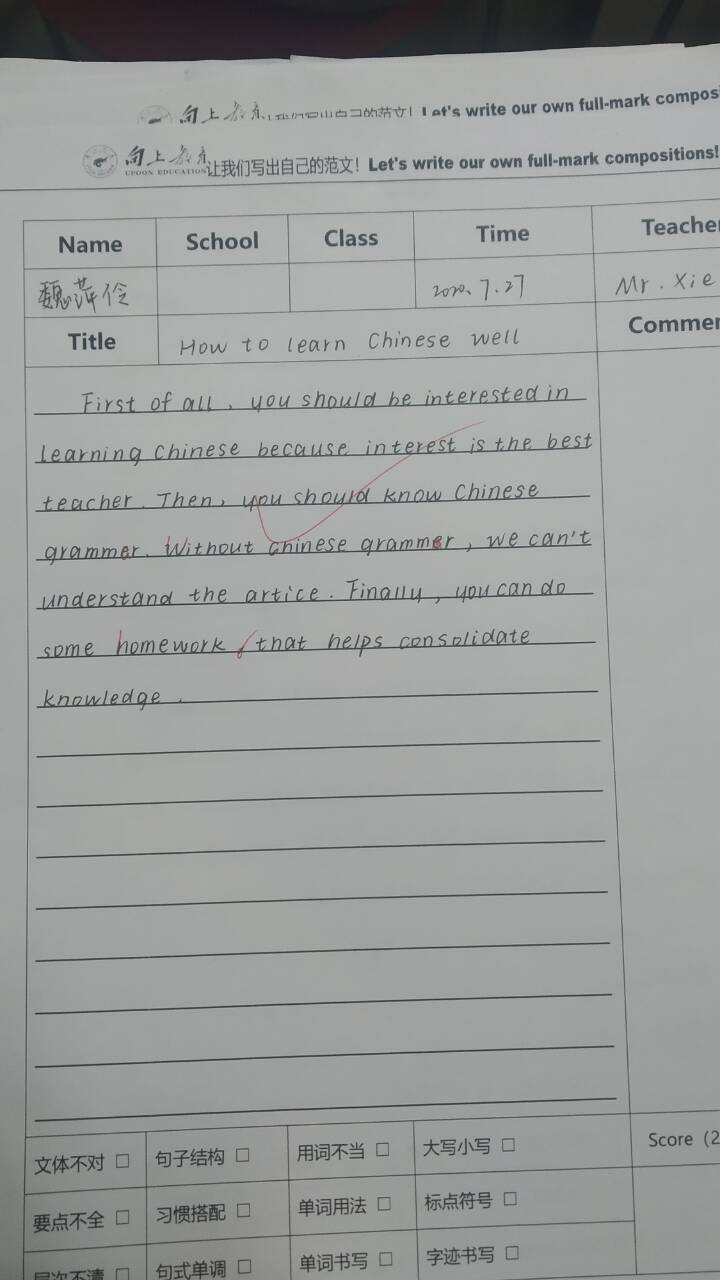 向上教育 我们写出自己的范文! Let's write our own full-mark compos
向上教育 UPOON EDUCATION 让我们写出自己的范文! Let's write our own full-mark compositions!
Name School Class Time Teacher
魏萍伶 2020.7.27 Mr. Xie
Title How to learn Chinese well Commen
First of all, you should be interested in
learning Chinese because interest is the best
teacher. Then, you should know Chinese
grammer. Without chinese grammer, we can't
understand the artice. Finally, you can do
some homework, that helps consolidate
knowledge.
文体不对 □ 句子结构 □ 用词不当 □ 大写小写 □ Score (2
要点不全 □ 习惯搭配 □ 单词用法 □ 标点符号 □
层次不清 □ 句式单调 □ 单词书写 □ 字迹书写 □